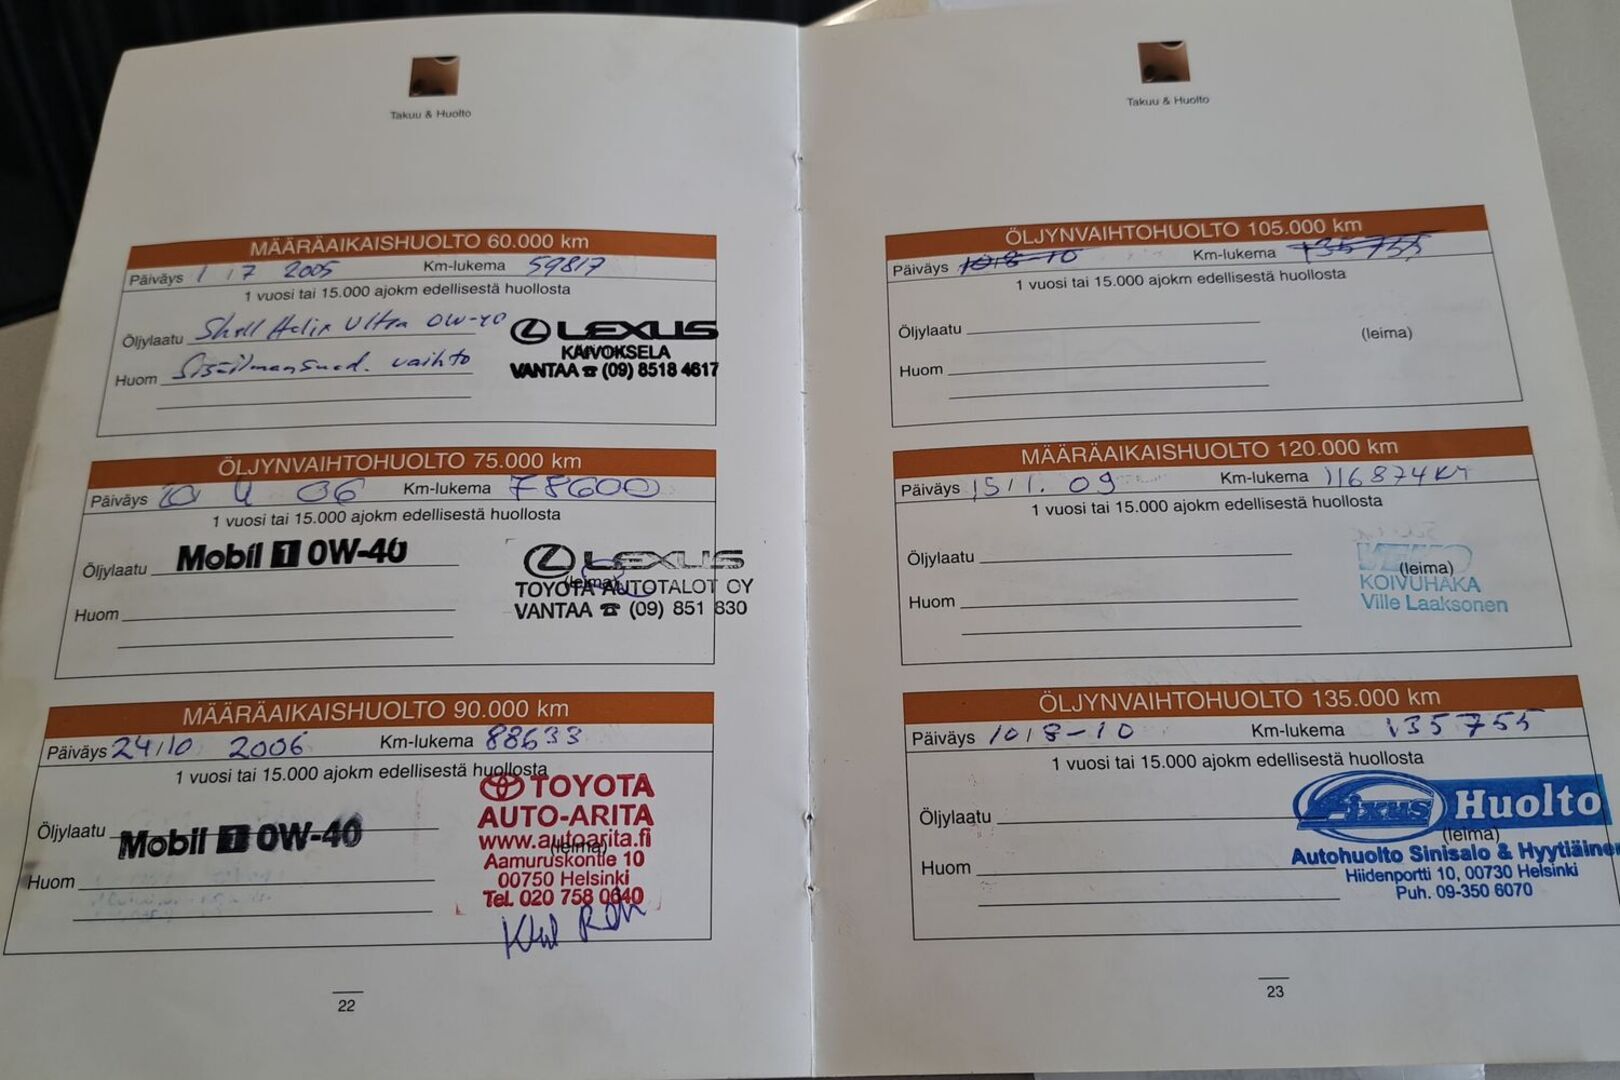 Takuu & Huolto
MÄÄRÄAIKAISHUOLTO 60.000 km
Päiväys 1 / 7 2005 Km-lukema 59817
1 vuosi tai 15.000 ajokm edellisestä huollosta
Öljylaatu Shell Helix Ultra 0W-40
Huom Sisäilmansuod. vaihto
LEXUS
KAIVOKSELA
VANTAA ☎ (09) 8518 4617
ÖLJYNVAIHTOHUOLTO 75.000 km
Päiväys 20 4 06 Km-lukema 78600
1 vuosi tai 15.000 ajokm edellisestä huollosta
Öljylaatu Mobil 1 0W-40
Huom
LEXUS
(leima)
TOYOTA AUTOTALOT OY
VANTAA ☎ (09) 851 830
MÄÄRÄAIKAISHUOLTO 90.000 km
Päiväys 24/10 2006 Km-lukema 88633
1 vuosi tai 15.000 ajokm edellisestä huollosta
Öljylaatu Mobil 1 0W-40
Huom
TOYOTA
AUTO-ARITA
www.autoarita.fi
(leima)
Aamuruskontie 10
00750 Helsinki
Tel. 020 758 0640
22
Takuu & Huolto
ÖLJYNVAIHTOHUOLTO 105.000 km
Päiväys 10/8-10 Km-lukema 135755
1 vuosi tai 15.000 ajokm edellisestä huollosta
Öljylaatu
(leima)
Huom
MÄÄRÄAIKAISHUOLTO 120.000 km
Päiväys 15/1. 09 Km-lukema 116874
1 vuosi tai 15.000 ajokm edellisestä huollosta
Öljylaatu
Huom
(leima)
KOIVUHAKA
Ville Laaksonen
ÖLJYNVAIHTOHUOLTO 135.000 km
Päiväys 10/8-10 Km-lukema 135755
1 vuosi tai 15.000 ajokm edellisestä huollosta
Öljylaatu
Huom
Fixus Huolto
(leima)
Autohuolto Sinisalo & Hyytiäinen
Hiidenportti 10, 00730 Helsinki
Puh. 09-350 6070
23